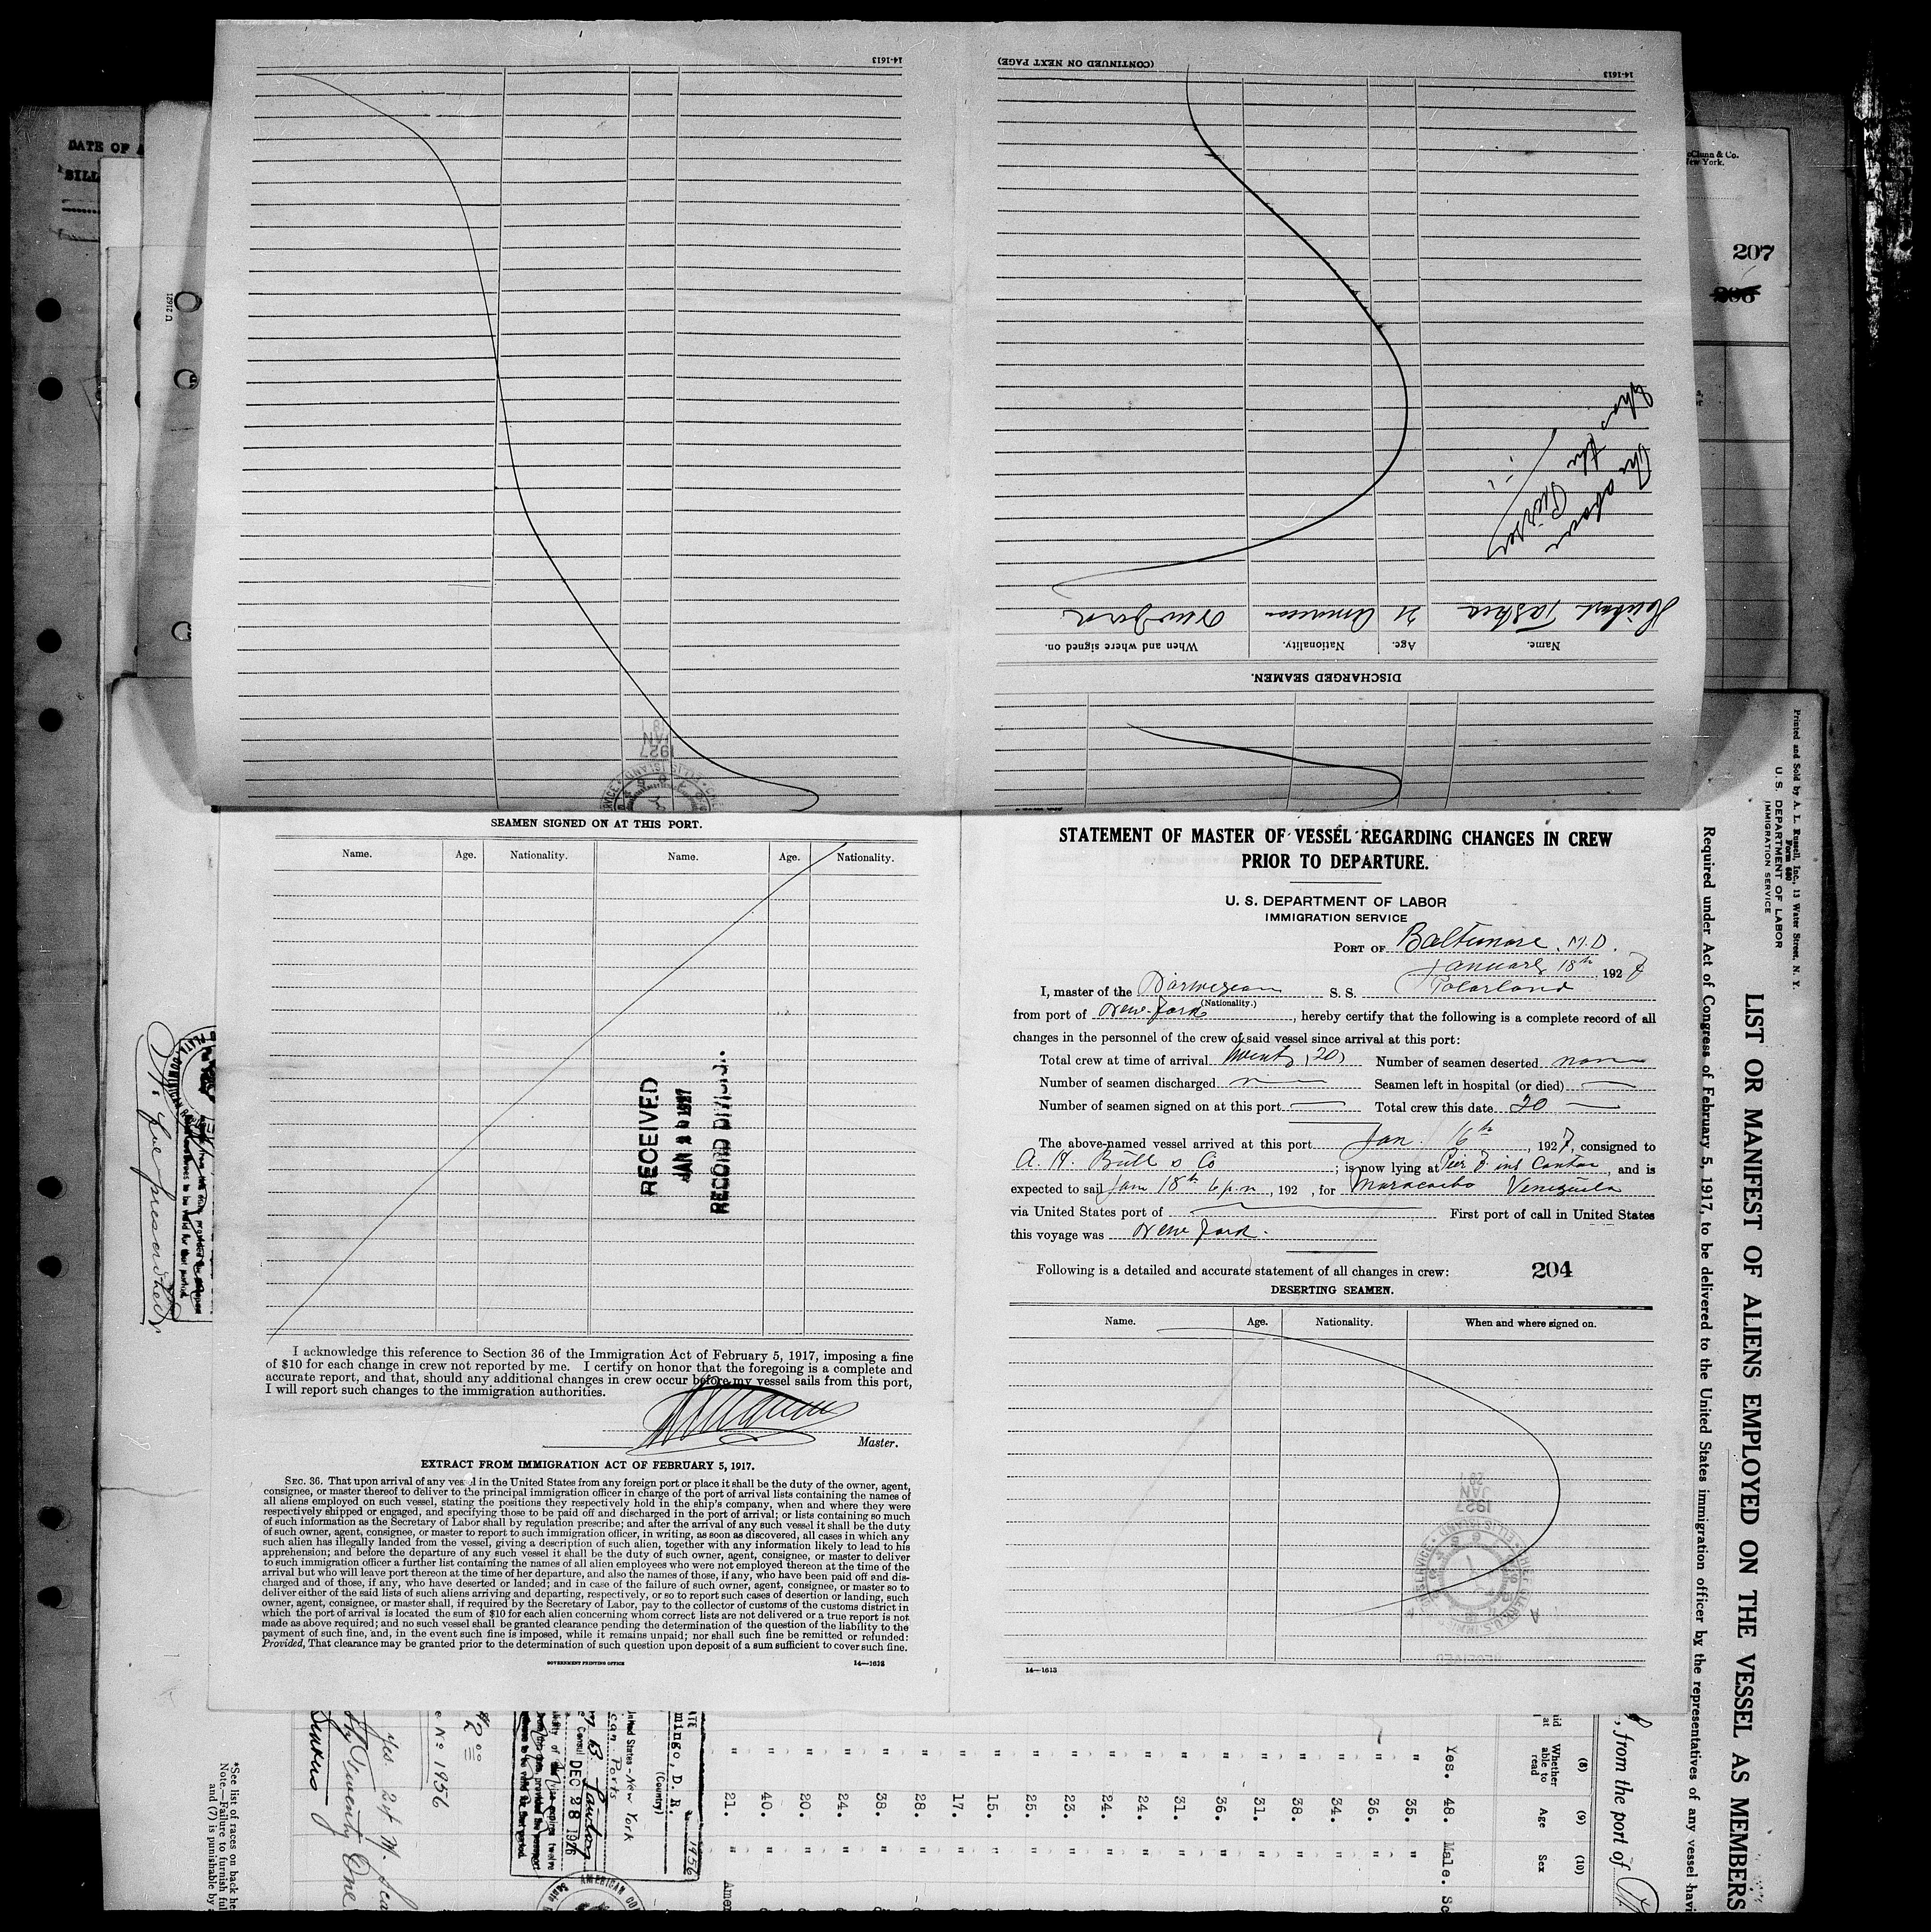 14-1613
(CONTINUED ON NEXT PAGE)
14-1613
DATE OF
BILL
New York.
207
206
U 21621
The above
the
Pier
21 American New York
Name.
Age.
Nationality.
When and where signed on.
DISCHARGED SEAMEN.
1927
JAN
18
ELLIS ISLAND
SEAMEN SIGNED ON AT THIS PORT.
Name. Age. Nationality. Name. Age. Nationality.
RECEIVED
JAN 20 1927
RECORD DIVISION.
I acknowledge this reference to Section 36 of the Immigration Act of February 5, 1917, imposing a fine
of $10 for each change in crew not reported by me. I certify on honor that the foregoing is a complete and
accurate report, and that, should any additional changes in crew occur before my vessel sails from this port,
I will report such changes to the immigration authorities.
Master.
EXTRACT FROM IMMIGRATION ACT OF FEBRUARY 5, 1917.
SEC. 36. That upon arrival of any vessel in the United States from any foreign port or place it shall be the duty of the owner, agent,
consignee, or master thereof to deliver to the principal immigration officer in charge of the port of arrival lists containing the names of
all aliens employed on such vessel, stating the positions they respectively hold in the ship's company, when and where they were
respectively shipped or engaged, and specifying those to be paid off and discharged in the port of arrival; or lists containing so much
of such information as the Secretary of Labor shall by regulation prescribe; and after the arrival of any such vessel it shall be the duty
of such owner, agent, consignee, or master to report to such immigration officer, in writing, as soon as discovered, all cases in which any
such alien has illegally landed from the vessel, giving a description of such alien, together with any information likely to lead to his
apprehension; and before the departure of any such vessel it shall be the duty of such owner, agent, consignee, or master to deliver
to such immigration officer a further list containing the names of all alien employees who were not employed thereon at the time of the
arrival but who will leave port thereon at the time of her departure, and also the names of those, if any, who have been paid off and dis-
charged and of those, if any, who have deserted or landed; and in case of the failure of such owner, agent, consignee, or master so to
deliver either of the said lists of such aliens arriving and departing, respectively, or so to report such cases of desertion or landing, such
owner, agent, consignee, or master shall, if required by the Secretary of Labor, pay to the collector of customs of the customs district in
which the port of arrival is located the sum of $10 for each alien concerning whom correct lists are not delivered or a true report is not
made as above required; and no such vessel shall be granted clearance pending the determination of the question of the liability to the
payment of such fine, and, in the event such fine is imposed, while it remains unpaid; nor shall such fine be remitted or refunded:
Provided, That clearance may be granted prior to the determination of such question upon deposit of a sum sufficient to cover such fine.
GOVERNMENT PRINTING OFFICE
14—1613
STATEMENT OF MASTER OF VESSEL REGARDING CHANGES IN CREW
PRIOR TO DEPARTURE.
U. S. DEPARTMENT OF LABOR
IMMIGRATION SERVICE
PORT OF Baltimore. M.D.
January 18th, 1927
I, master of the Norwegian S. S. Polarland
(Nationality.)
from port of New York, hereby certify that the following is a complete record of all
changes in the personnel of the crew of said vessel since arrival at this port:
Total crew at time of arrival twenty (20) Number of seamen deserted none
Number of seamen discharged Seamen left in hospital (or died)
Number of seamen signed on at this port Total crew this date 20
The above-named vessel arrived at this port Jan. 16th, 1927, consigned to
A. H. Bull & Co ; is now lying at Pier Canton, and is
expected to sail Jan 18th 6 p.m, 192 , for Maracaibo Venezuela
via United States port of First port of call in United States
this voyage was New York.
Following is a detailed and accurate statement of all changes in crew: 204
DESERTING SEAMEN.
Name. Age. Nationality. When and where signed on.
1927
JAN
18
ELLIS ISLAND
RECEIVED
14—1613
Printed and Sold by A. L. Russell, Inc., 13 Water Street, N. Y.
Form 680
U. S. DEPARTMENT OF LABOR
IMMIGRATION SERVICE
LIST OR MANIFEST OF ALIENS EMPLOYED ON THE VESSEL AS MEMBERS
Required under Act of Congress of February 5, 1917, to be delivered to the United States immigration officer by the representatives of any vessel havi
, from the port of
(8) (9) (10)
Whether able to read
Age
Sex
Yes. 48. Male. Sc
" 35. "
" 36. "
" 34. "
" 38. "
" 31. "
" 36. "
" 31. "
" 24. "
" 24. "
" 23. "
" 25. "
" 15. "
" 17. "
" 28. "
" 38. "
" 24. "
" 20. "
" 40. "
" 21. " Amer
mingo, D. R.
(Country)
1956
nited States - New York
can Ports
Consul DEC 28 1926
AMERICAN CO
$2.00
e No 1956
yes. 24
Twenty One
*See list of races on back he
Note.—Failure to furnish ful
and (7) is punishable by